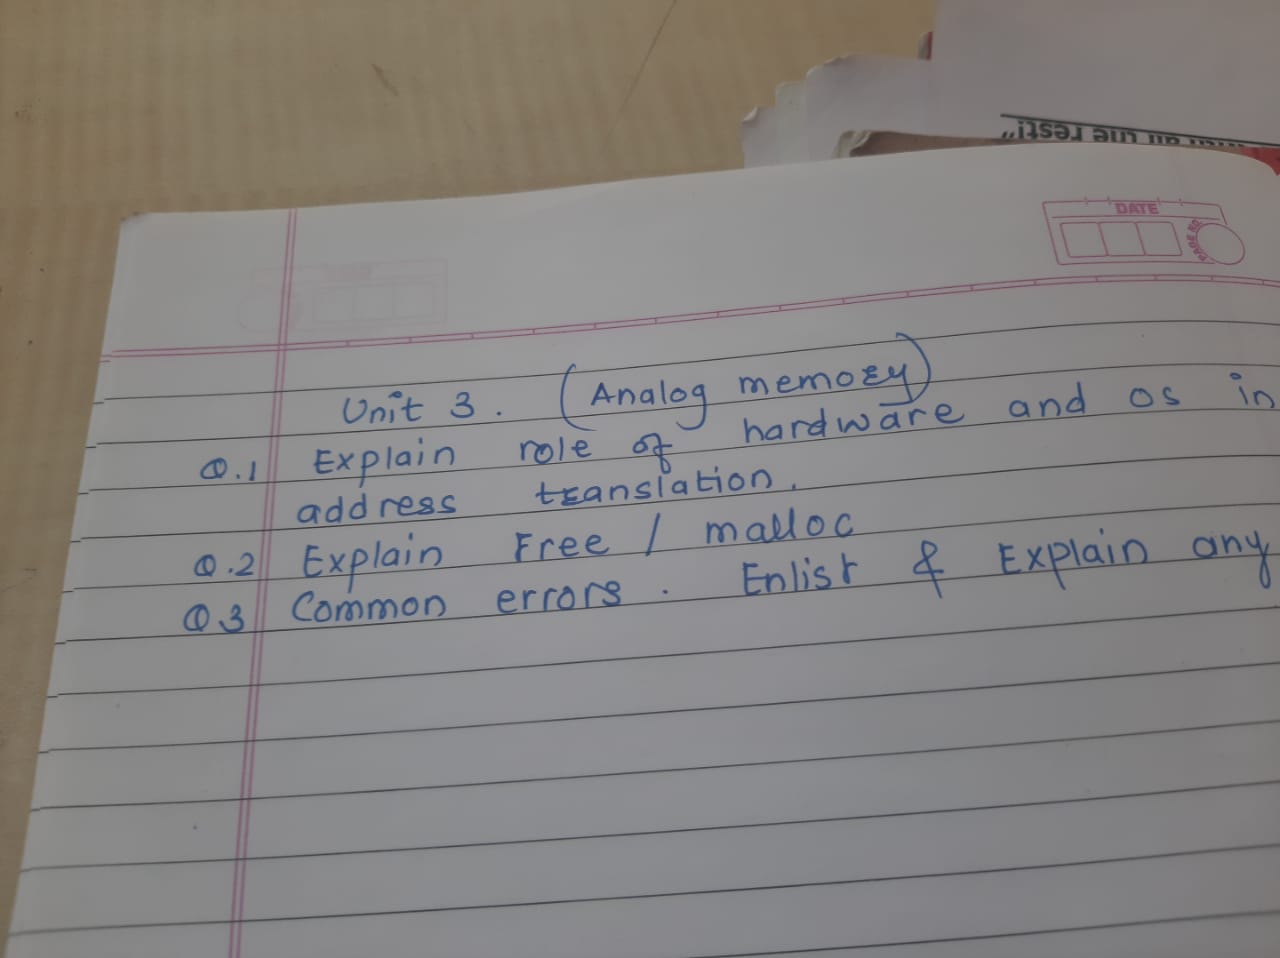 with all the rest!"
DATE
PAGE NO
Unit 3. (Analog memory)
Q.1 Explain role of hardware and os in
address translation.
Q.2 Explain Free / malloc
Q3 Common errors. Enlist & Explain any